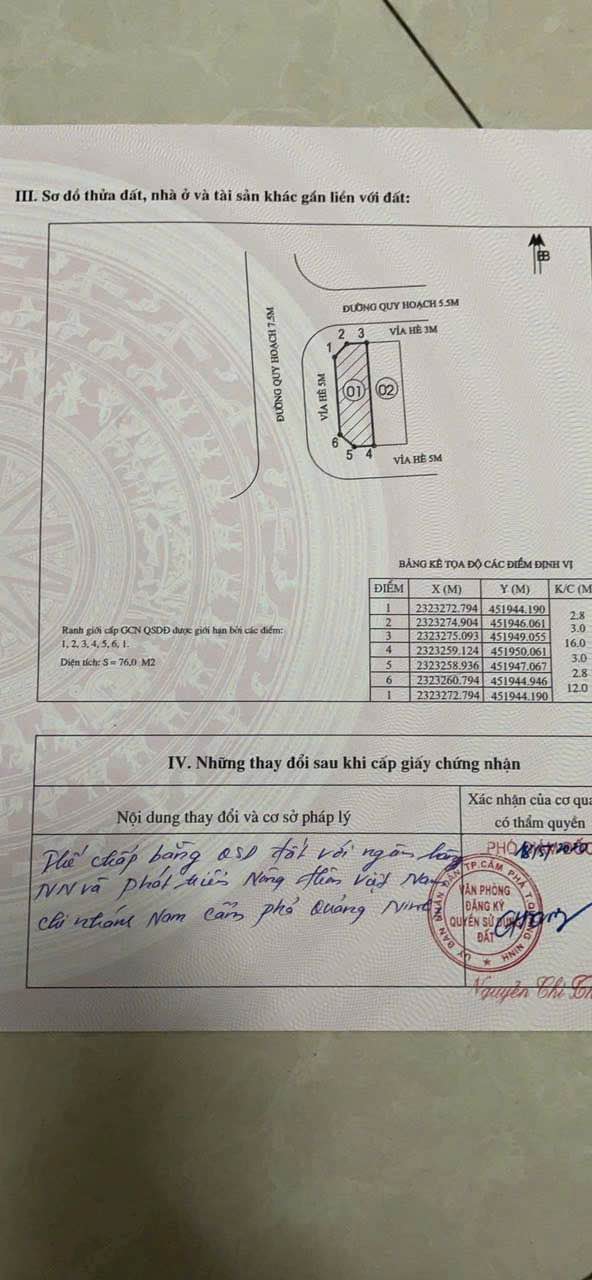 III. Sơ đồ thửa đất, nhà ở và tài sản khác gắn liền với đất:
B
ĐƯỜNG QUY HOẠCH 5.5M
VỈA HÈ 3M
ĐƯỜNG QUY HOẠCH 7.5M
VỈA HÈ 5M
1 2 3
01 02
6 5 4
VỈA HÈ 5M
BẢNG KÊ TỌA ĐỘ CÁC ĐIỂM ĐỊNH VỊ
ĐIỂM X (M) Y (M) K/C (M
1 2323272.794 451944.190
2.8
2 2323274.904 451946.061
3.0
3 2323275.093 451949.055
16.0
4 2323259.124 451950.061
3.0
5 2323258.936 451947.067
2.8
6 2323260.794 451944.946
12.0
1 2323272.794 451944.190
Ranh giới cấp GCN QSDĐ được giới hạn bởi các điểm:
1, 2, 3, 4, 5, 6, 1.
Diện tích: S = 76,0 M2
IV. Những thay đổi sau khi cấp giấy chứng nhận
Nội dung thay đổi và cơ sở pháp lý
Xác nhận của cơ qua
có thẩm quyền
Thế chấp bằng QSD đất với ngân hàng
NN và phát triển Nông thôn Việt Nam
chi nhánh Nam Cẩm phả Quảng Ninh
PHÓ
ỦY BAN NHÂN DÂN TP.CẨM PHẢ T.QUẢNG NINH
VĂN PHÒNG
ĐĂNG KÝ
QUYỀN SỬ DỤNG
ĐẤT
Nguyễn Thị